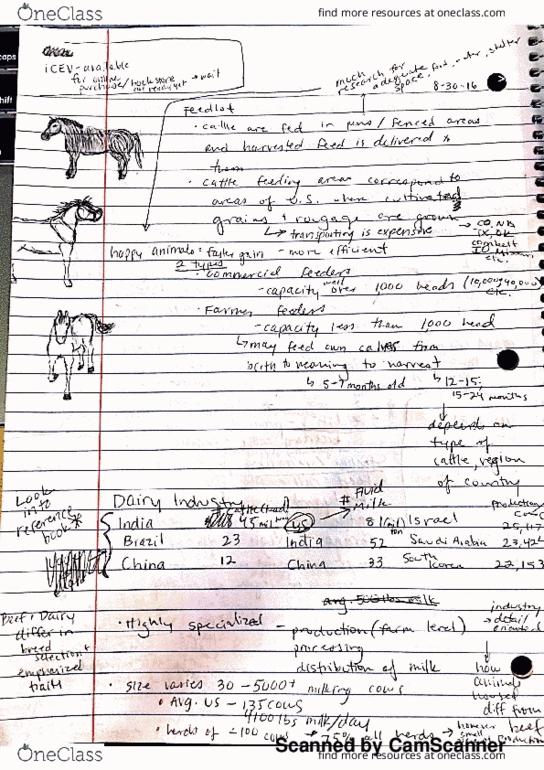 OneClass
find more resources at oneclass.com
iCEV-available
for online
purchase/
→ wait
much
research for
adequate
space,
8-30-16
Feedlot
• cattle are fed in pens / fenced areas
and harvested feed is delivered to
them
• cattle feeding areas correspond to
areas of U.S. where cultivated
grains + roughage are grown
↳ transporting is expensive
→ CO, NB
TX, OK
cornbelt
etc.
happy animals = faster gain - more efficient
2 types
• commercial feeders
- capacity well over 1000 heads (10,000-40,000
etc.
• Farmer feeders
- capacity less than 1,000 head
↳ may feed own calves from
birth to weaning to harvest
↳ 5-7 months old
↳ 12-15;
15-24 months
depends on
type of
cattle, region
of country
Look
into
reference
book*
Dairy Industry
# Fluid
Milk
production
India 45 mil
US 81 Israel
Brazil 23 India 52 Saudi Arabia
China 12 China 33 South Korea
Beef + Dairy
differ in
breed
selection +
emphasized
traits
• Highly specialized - production (farm level)
processing
distribution of milk
industry
→ detail
oriented
how
animals
housed
diff from
beef
• size varies 30 - 5000+ milking cows
• Avg. US - 135 cows
4100 lbs milk/day
• herds of <100 cows → 75% all herds
→ however
small
Scanned by CamScanner
OneClass
find more resources at oneclass.com